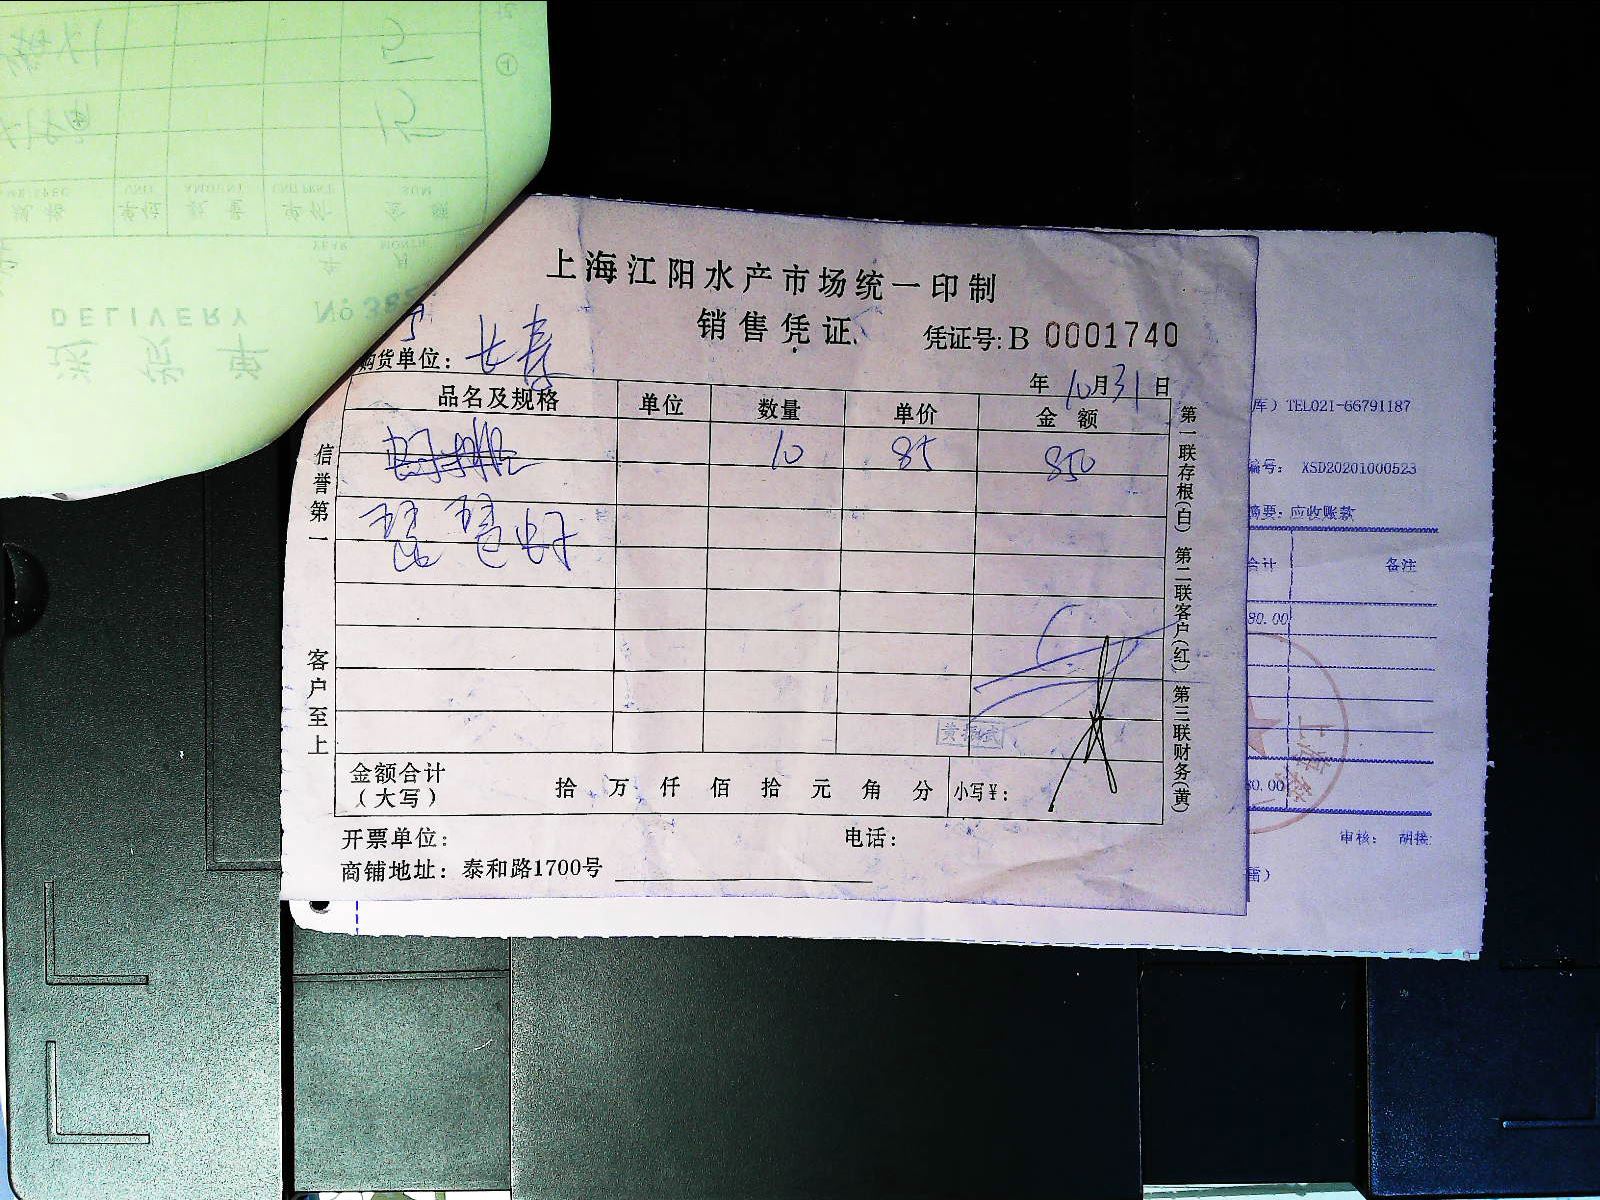 上海江阳水产市场统一印制
销售凭证
凭证号:B 0001740
购货单位: 长春
年 10月31日
品名及规格 单位 数量 单价 金额
10 85 850
琵琶虾
信誉第一
客户至上
第一联存根(白) 第二联客户(红) 第三联财务(黄)
金额合计(大写) 拾 万 仟 佰 拾 元 角 分 小写¥:
开票单位: 电话:
商铺地址: 泰和路1700号
库）TEL021-66791187
编号: XSD20201000523
摘要: 应收账款
合计 备注
80.00
80.00
审核: 胡
送货单
DELIVERY
年 月
YEAR MONTH
规格 单位 数量 单价 金额
UNIT AMOUNT SUM
15
15